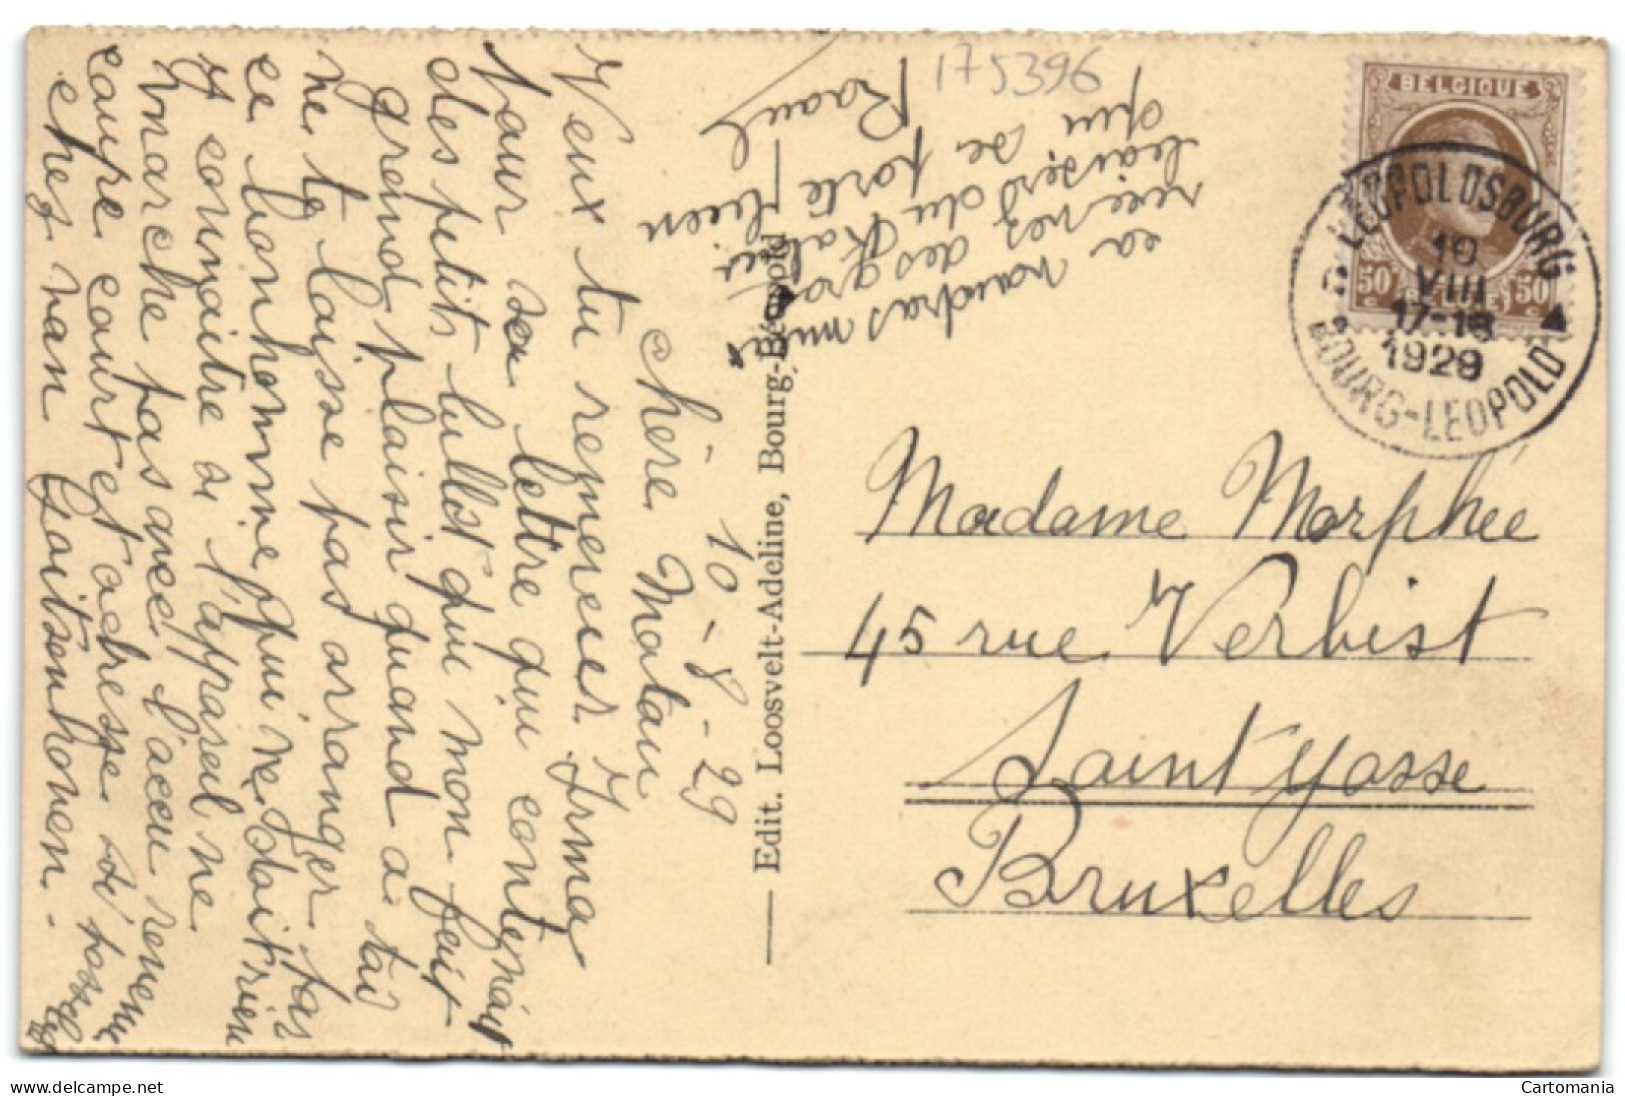 175396
BELGIQUE
50 50
LEOPOLDSBURG
10
VIII
17-18
1929
BOURG-LEOPOLD
10-8-29
Chère Matau
Veux tu remercier Irma
pour sa lettre qui contenait
des petits bullst qui m'on fait
grand plaisir quand a tai
ne te laisse pas arranger pas
ce bonhomme qui ne dait rien
y connaitre si l'appareil ne
marche pas avec l'accu
caupe caurt et adresse
chez van Gaitsenhoven.
ca
viendras
baisers du
qui se porte bien
Raoul
Edit. Loosvelt-Adeline, Bourg-Léopold
Madame Morphée
45 rue Verbist
Saint Yosse
Bruxelles
www.delcampe.net
Cartomania